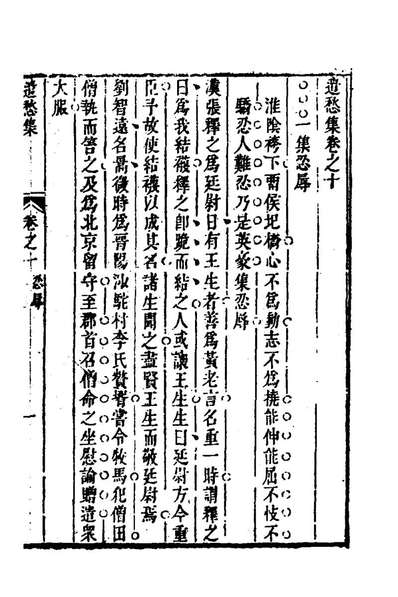 遣愁集卷之十
一集忍辱
淮陰袴下畱侯圯橋心不爲動志不爲撓能伸能屈不忮不
驕忍人難忍乃是英豪集忍辱
漢張釋之爲廷尉日有王生者善爲黃老言名重一時謂釋之
曰爲我結襪釋之卽跪而結之人或讓王生生曰廷尉方今重
臣予故使結襪以成其名諸生聞之盡賢王生而敬廷尉焉
劉智遠名暠後時爲晉陽汕駝村李氏贅壻嘗令牧馬犯僧田
僧執而笞之及爲北京留守至郡首召僧命之坐慰諭贈遣衆
大服
遣愁集
卷之十
忍辱
一